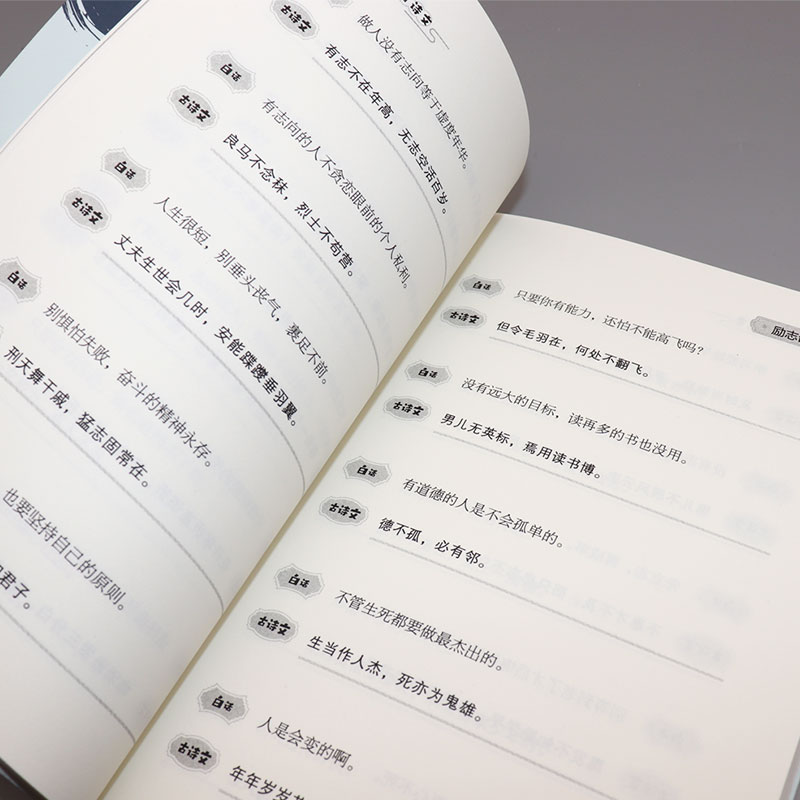 古诗文
做人没有志向等于虚度年华。
古诗文
有志不在年高，无志空活百岁。
白话
有志向的人不贪恋眼前的个人私利。
古诗文
良马不念秣，烈士不苟营。
白话
人生很短，别垂头丧气，裹足不前。
古诗文
丈夫生世会几时，安能蹀躞垂羽翼。
白话
别惧怕失败，奋斗的精神永存。
刑天舞干戚，猛志固常在。
也要坚持自己的原则。
君子。
励志
白话
只要你有能力，还怕不能高飞吗？
古诗文
但令毛羽在，何处不翻飞。
白话
没有远大的目标，读再多的书也没用。
古诗文
男儿无英标，焉用读书博。
白话
有道德的人是不会孤单的。
古诗文
德不孤，必有邻。
白话
不管生死都要做最杰出的。
古诗文
生当作人杰，死亦为鬼雄。
白话
人是会变的啊。
古诗文
年年岁岁